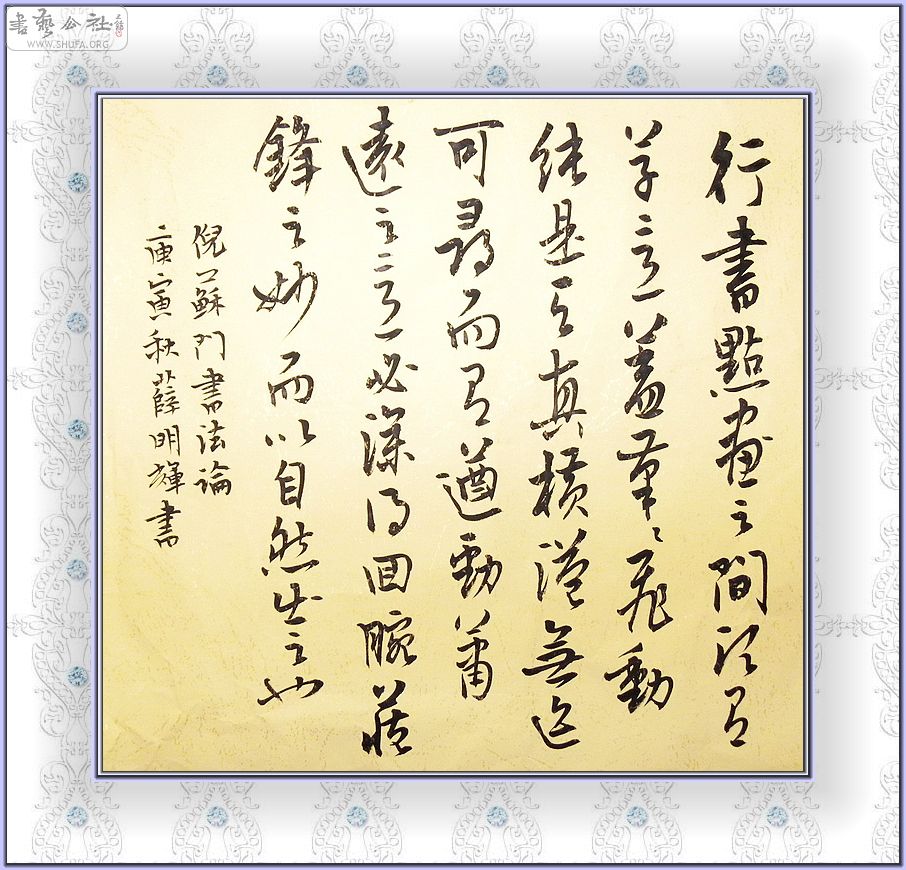 書藝公社
WWW.SHUFA.ORG
行書點畫之間須有
草意蓋筆〻飛動
純是天真橫溢無迹
可尋而有遒勁蕭
遠之意必深得回腕藏
鋒之妙而以自然出之也
倪蘇門書法論
庚寅秋薛明輝書